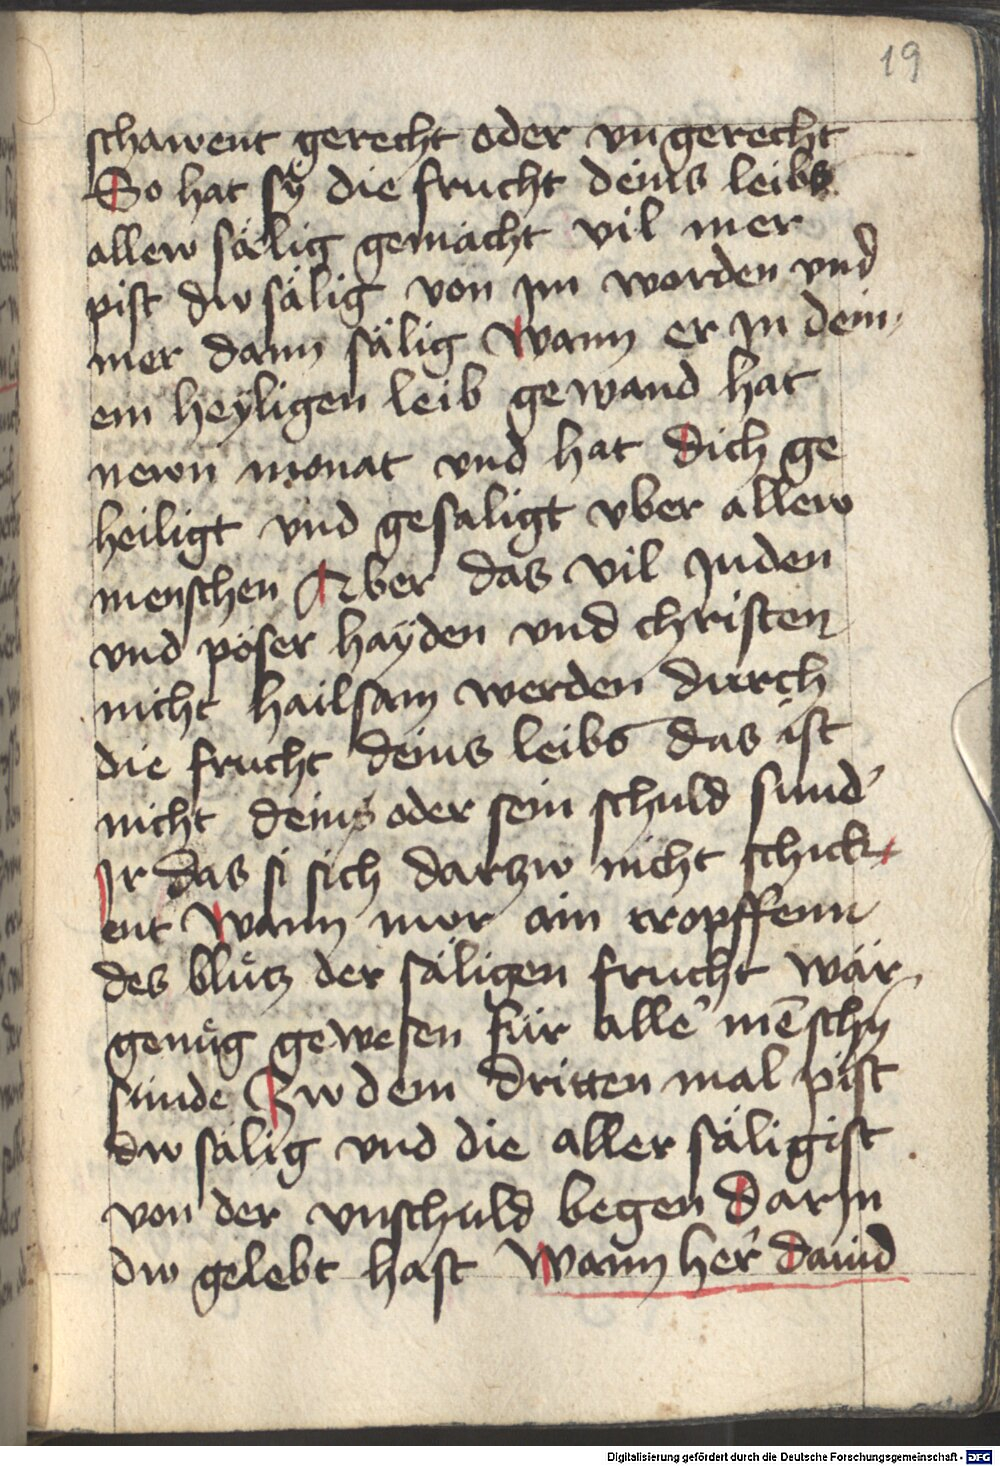 19
schawent gerecht oder vngerecht
So hat sÿ die frucht deins leibs
allew sälig gemacht vil mer
pist dw sälig von jm worden vnd
mer dann sälig Wann er jn dein
em heÿligen leib gewand hat
newn monat vnd hat dich ge
heiligt vnd gesaligt vber allew
menschen Aber das vil juden
vnd pöser haÿden vnd christen
nicht hailsam werden durch
die frucht deins leibs das ist
nicht deins oder sein schuld sund'
Jr das si sich darzw nicht schick
ent Wann mor ain tropffenn
des bluͦtz der säligen frucht wär
genuͦg gewesen für alle' mēschn
sünde Zw dem dritten mal pist
dw sälig vnd die aller säligist
von der vnschuld begen Darjn
dw gelebt hast Wann her' dauid
Digitalisierung gefördert durch die Deutsche Forschungsgemeinschaft - DFG